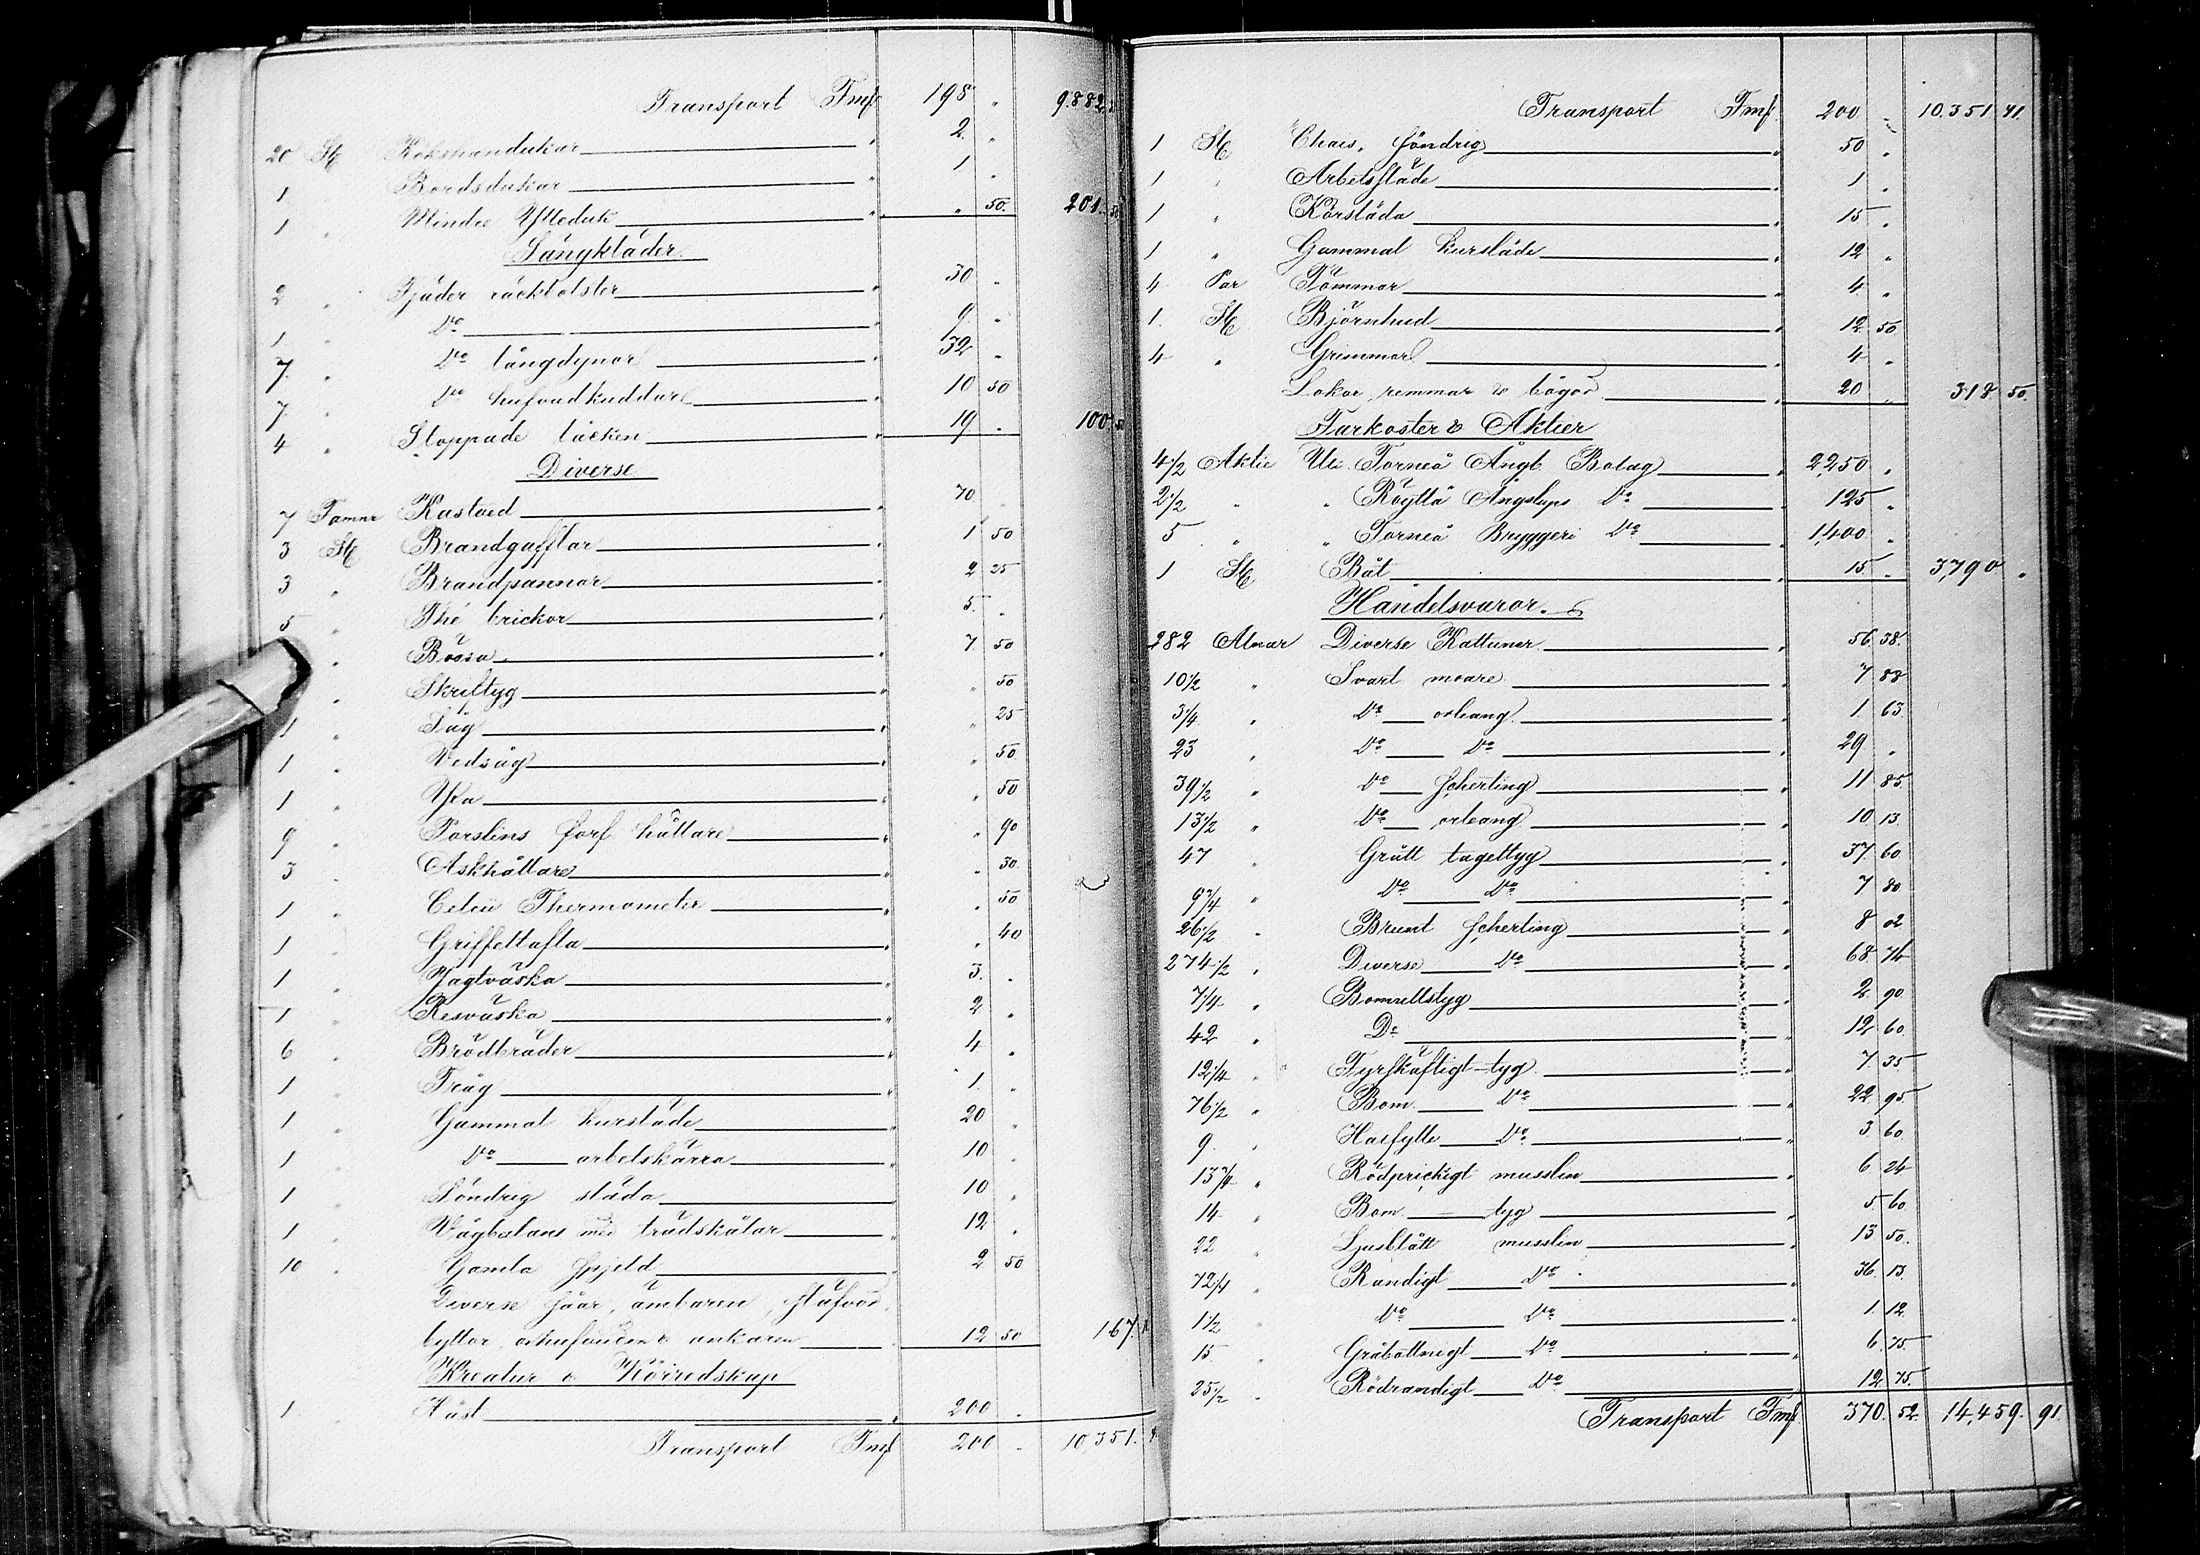 Transport Fmk 198 " 9.882
20 St Kokshandukar " 2. "
1 " Bordsdukar " 1 "
1 " Mindre Ylleduk " " 50. 201. 50
Sängkläder
2 " Fjäder räcktolster " 30 "
1 " Do " 9 "
7. " Do långdynor " 32 "
7. " Do hufvudkuddar " 10 50
4 " Stoppade täcken " 19. " 100 50
Diverse
7 Famnr Kastved 70 "
3 St Brandgafflar " 1 50
3 " Brandpannor " 2 25
5 " Thé brickor " 5. "
" Bössa " 7 50
" Skriftyg " " 50
1 " Såg " " 25
1 " Vedsåg " " 50
1 " Yxa " " 50
9 " Porslins hållare " " 90
3 " Askhållare " " 30.
1 " Celcii Thermometer " " 50
1 " Griffeltafla " " 40
1 " Jagtväska " 3. "
1 " Resväska " 2 "
6 " Brödbräder " 4 "
1 " Tråg " 1. "
1 " Gammal kursläde " 20 "
1 " Do arbetskärra " 10 "
1 " Söndrig släda " 10 "
1 " Vågbalans med trädskålar " 12 "
10 " Gamla spjeld " 2 50
Diverse såar, ämbaren,
byttor, ankaren 12 50 167.
Kreatur o Körredskap
1 " Häst " 200 "
Transport Fmk 200 " 10,351.
Transport Fmk 200 " 10.351 41
1 St Chais, söndrig " 50 "
1 " Arbetsläde " 1 "
1 " Körsläda " 15 "
1 " Gammal kursläde " 12 "
4 Par Tömmar " 4 "
1. St Björnhud " 12 50
4 " Grimmor " 4 "
Lokor, remmar & bogar " 20 " 318 50.
Farkoster & Aktier
4 1/2 Aktie Uti Torneå Ångb. Bolag " 2250 "
2 1/2 " " Röyttä Ångslups Do " 125 "
5 " " Torneå Bryggeri Do " 1,400 "
1 St Båt " 15 " 3,790 "
Handelsvaror.
282 Alnar Diverse Kattuner " 56 38.
10 1/2 " Svart moare " 7 88
3/4 " Do orleang " 1 63
23 " Do Do " 29 "
39 1/2 " Do scherting " 11 85.
13 1/2 " Do orleang " 10 13
47 " Grått tageltyg " 37 60
9 3/4 " Do Do " 7 80
26 1/2 " Brunt scherting " 8 02
274 1/2 " Diverse Do " 68 74
7/4 " Bomullstyg " 2 90
42 " Do " 12 60
12 1/4 " Fyrskäftigt tyg " 7. 35
76 1/2 " Bom. Do " 22 95
9 " Halfylle Do " 3 60
13 3/4 " Rödprickigt musslin " 6 24
14 " Bom. tyg " 5 60
22 " Ljusblått musslin " 13 50.
72 1/4 " Randigt Do " 36 13
1 1/2 " Do Do " 1 12
15 " Gråbottnigt Do " 6 75
25 1/2 " Rödrandigt Do " 12 75.
Transport Fmk 370. 52. 14,459. 91.